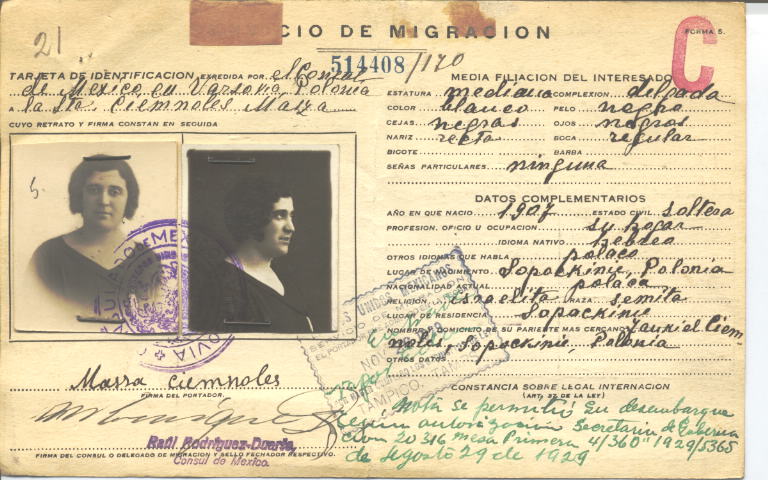 21
CIO DE MIGRACION
FORMA 5.
C
514408/170
TARJETA DE IDENTIFICACION EXPEDIDA POR el Consul
de Mexico en Varsovia, Polonia
A la Sta. Ciemnoles Masza
CUYO RETRATO Y FIRMA CONSTAN EN SEGUIDA
5.
Massa Ciemnoles
FIRMA DEL PORTADOR.
Raúl Rodríguez-Duarte,
Consul de Mexico.
FIRMA DEL CONSUL O DELEGADO DE MIGRACION Y SELLO FECHADOR RESPECTIVO.
MEDIA FILIACION DEL INTERESADO
ESTATURA mediana COMPLEXION delgada
COLOR blanco PELO negro
CEJAS negras OJOS negros
NARIZ recta BOCA regular
BIGOTE BARBA
SEÑAS PARTICULARES ninguna
DATOS COMPLEMENTARIOS
AÑO EN QUE NACIO 1907 ESTADO CIVIL soltera
PROFESION, OFICIO U OCUPACION su hogar
IDIOMA NATIVO hebreo
OTROS IDIOMAS QUE HABLA polaco
LUGAR DE NACIMIENTO Sopockinie, Polonia
NACIONALIDAD ACTUAL polaca
RELIGION israelita RAZA semita
LUGAR DE RESIDENCIA Sopockinie
NOMBRE Y DOMICILIO DE SU PARIENTE MAS CERCANO Ciem
noles, Sopockinie, Polonia
OTROS DATOS
UNIDOS MEXICANOS
TAMPICO, TAM
CONSTANCIA SOBRE LEGAL INTERNACION
(ART. 32 DE LA LEY)
Nota se permitió su desembarque
según autorización Secretaría de Goberna
cion 20316 mesa Primera 4/360" 1929/5365
de Agosto 29 de 1929